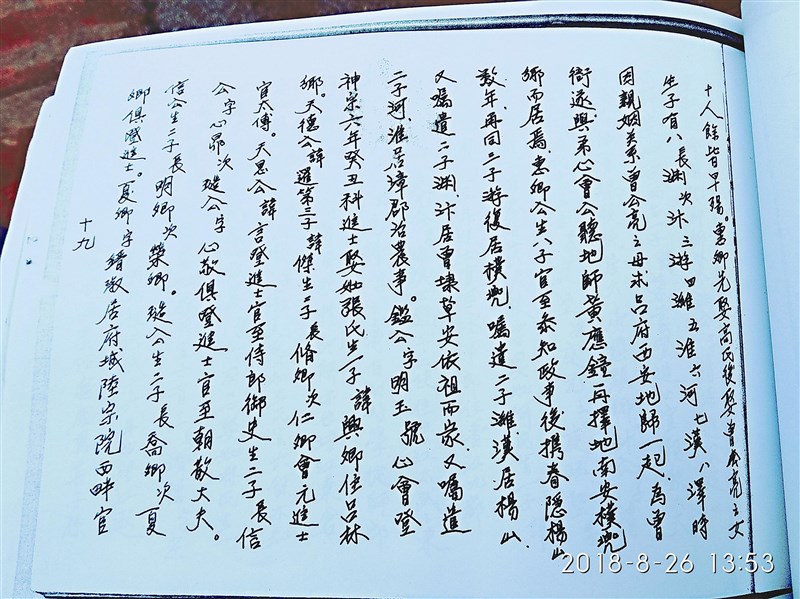 十人餘皆早殤。惠卿先娶高氏後娶曾公亮之女
生子有八長渊次汴三游四濰五淮六河七漢八澤時
因親姻关系曾公亮之母求吕府西安地歸一起為曾
衙遂與弟心會公聽地師黃應鐘再擇地南安樸兜
鄉而居焉惠卿公生八子官至叅知政事後携眷隱楊山
数年再囬二子游復居樸兜嘱遺二子濰漢居楊山
又嘱遺二子渊汴居曾埭草安依祖而家又嘱遺
二子河淮居漳郡治農事。鑑公字明玉號心會登
神宗六年癸丑科進士娶妣張氏生一子諱興卿住吕林
鄉。天德公諱暹第三子諱傑生二子長脩卿次仁卿會元進士
官太傅。天思公諱言登進士官至侍郎御史生二子長信
公字心昴次公字心敬俱登進士官至朝散大夫。
信公生二子長明卿次榮卿。公生二子長喬卿次夏
卿俱登進士。夏卿字縉淑居府城陸宗院西畔官
十九
2018-8-26 13:53